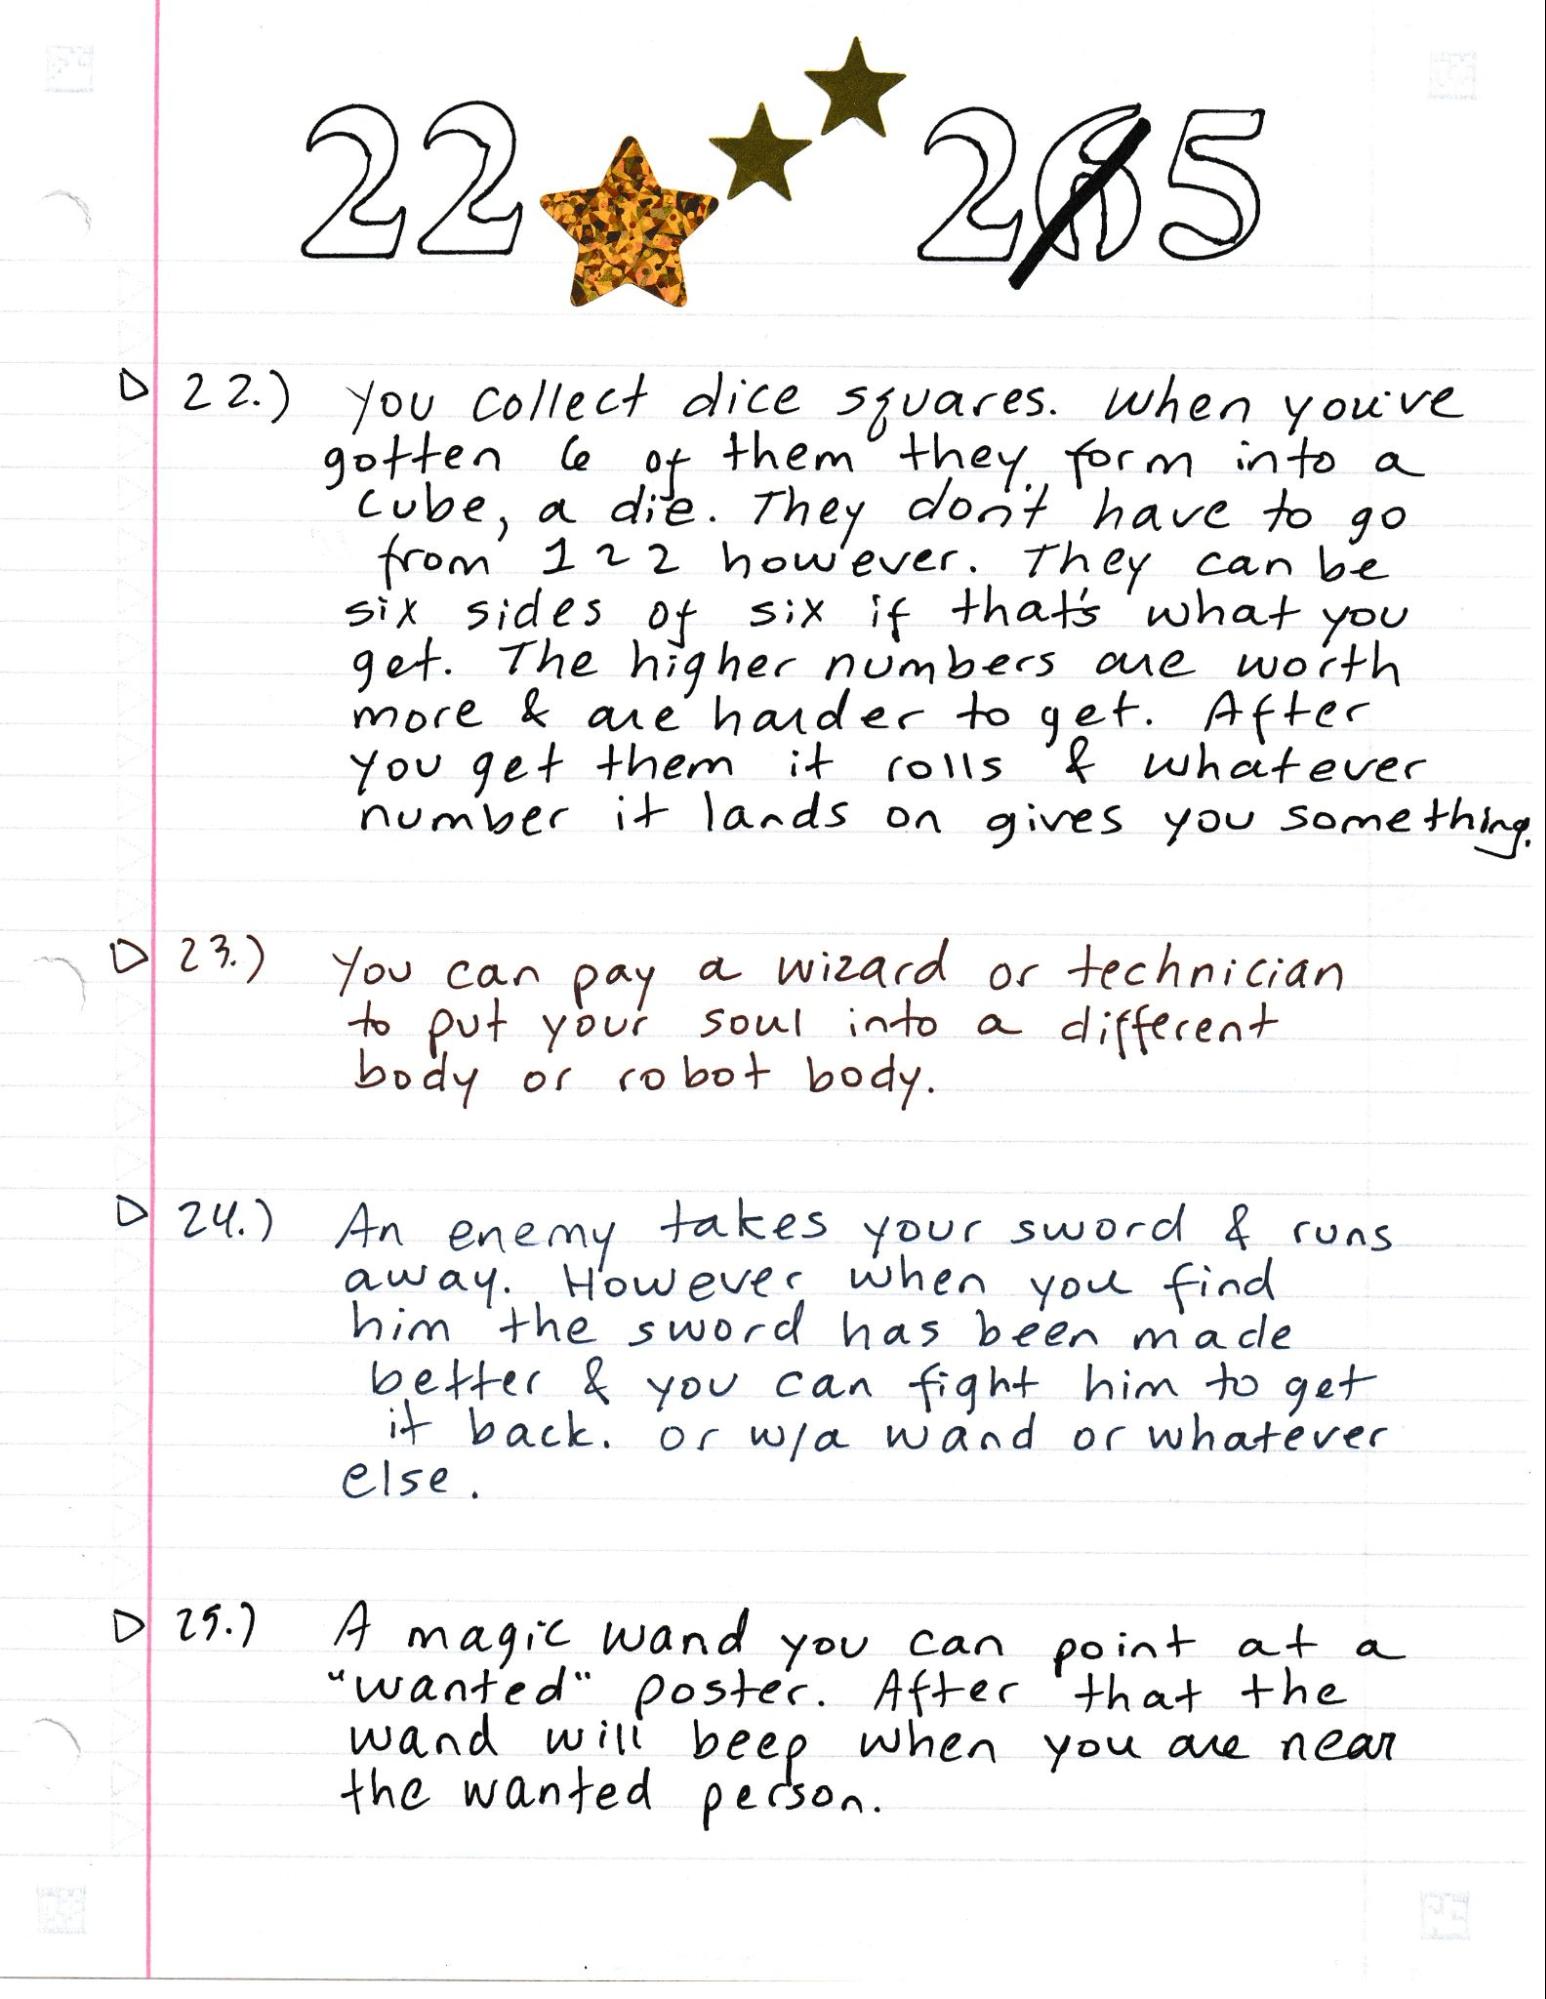 22 265
22.) You collect dice squares. When you've
gotten 6 of them they form into a
cube, a die. They don't have to go
from 1 2 2 however. They can be
six sides of six if that's what you
get. The higher numbers are worth
more & are harder to get. After
you get them it rolls & whatever
number it lands on gives you something.
23.) You can pay a wizard or technician
to put your soul into a different
body or robot body.
24.) An enemy takes your sword & runs
away. However when you find
him the sword has been made
better & you can fight him to get
it back. or w/a wand or whatever
else.
25.) A magic wand you can point at a
"wanted" poster. After that the
wand will beep when you are near
the wanted person.